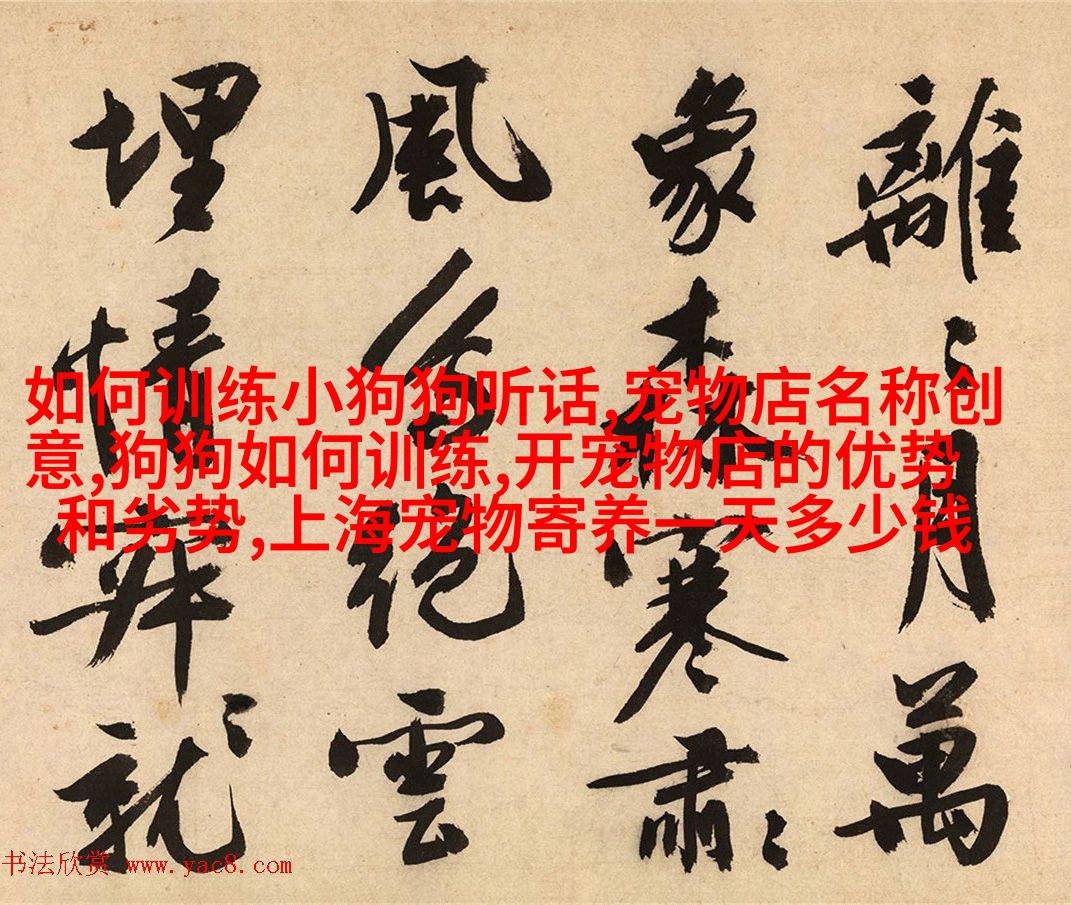 離〻月萬
象森寒肅〻
風絕雲
埋情就〻
如何训练小狗狗听话,宠物店名称创
意,狗狗如何训练,开宠物店的优势
和劣势,上海宠物寄养一天多少钱
书法欣赏 www.yac8.com